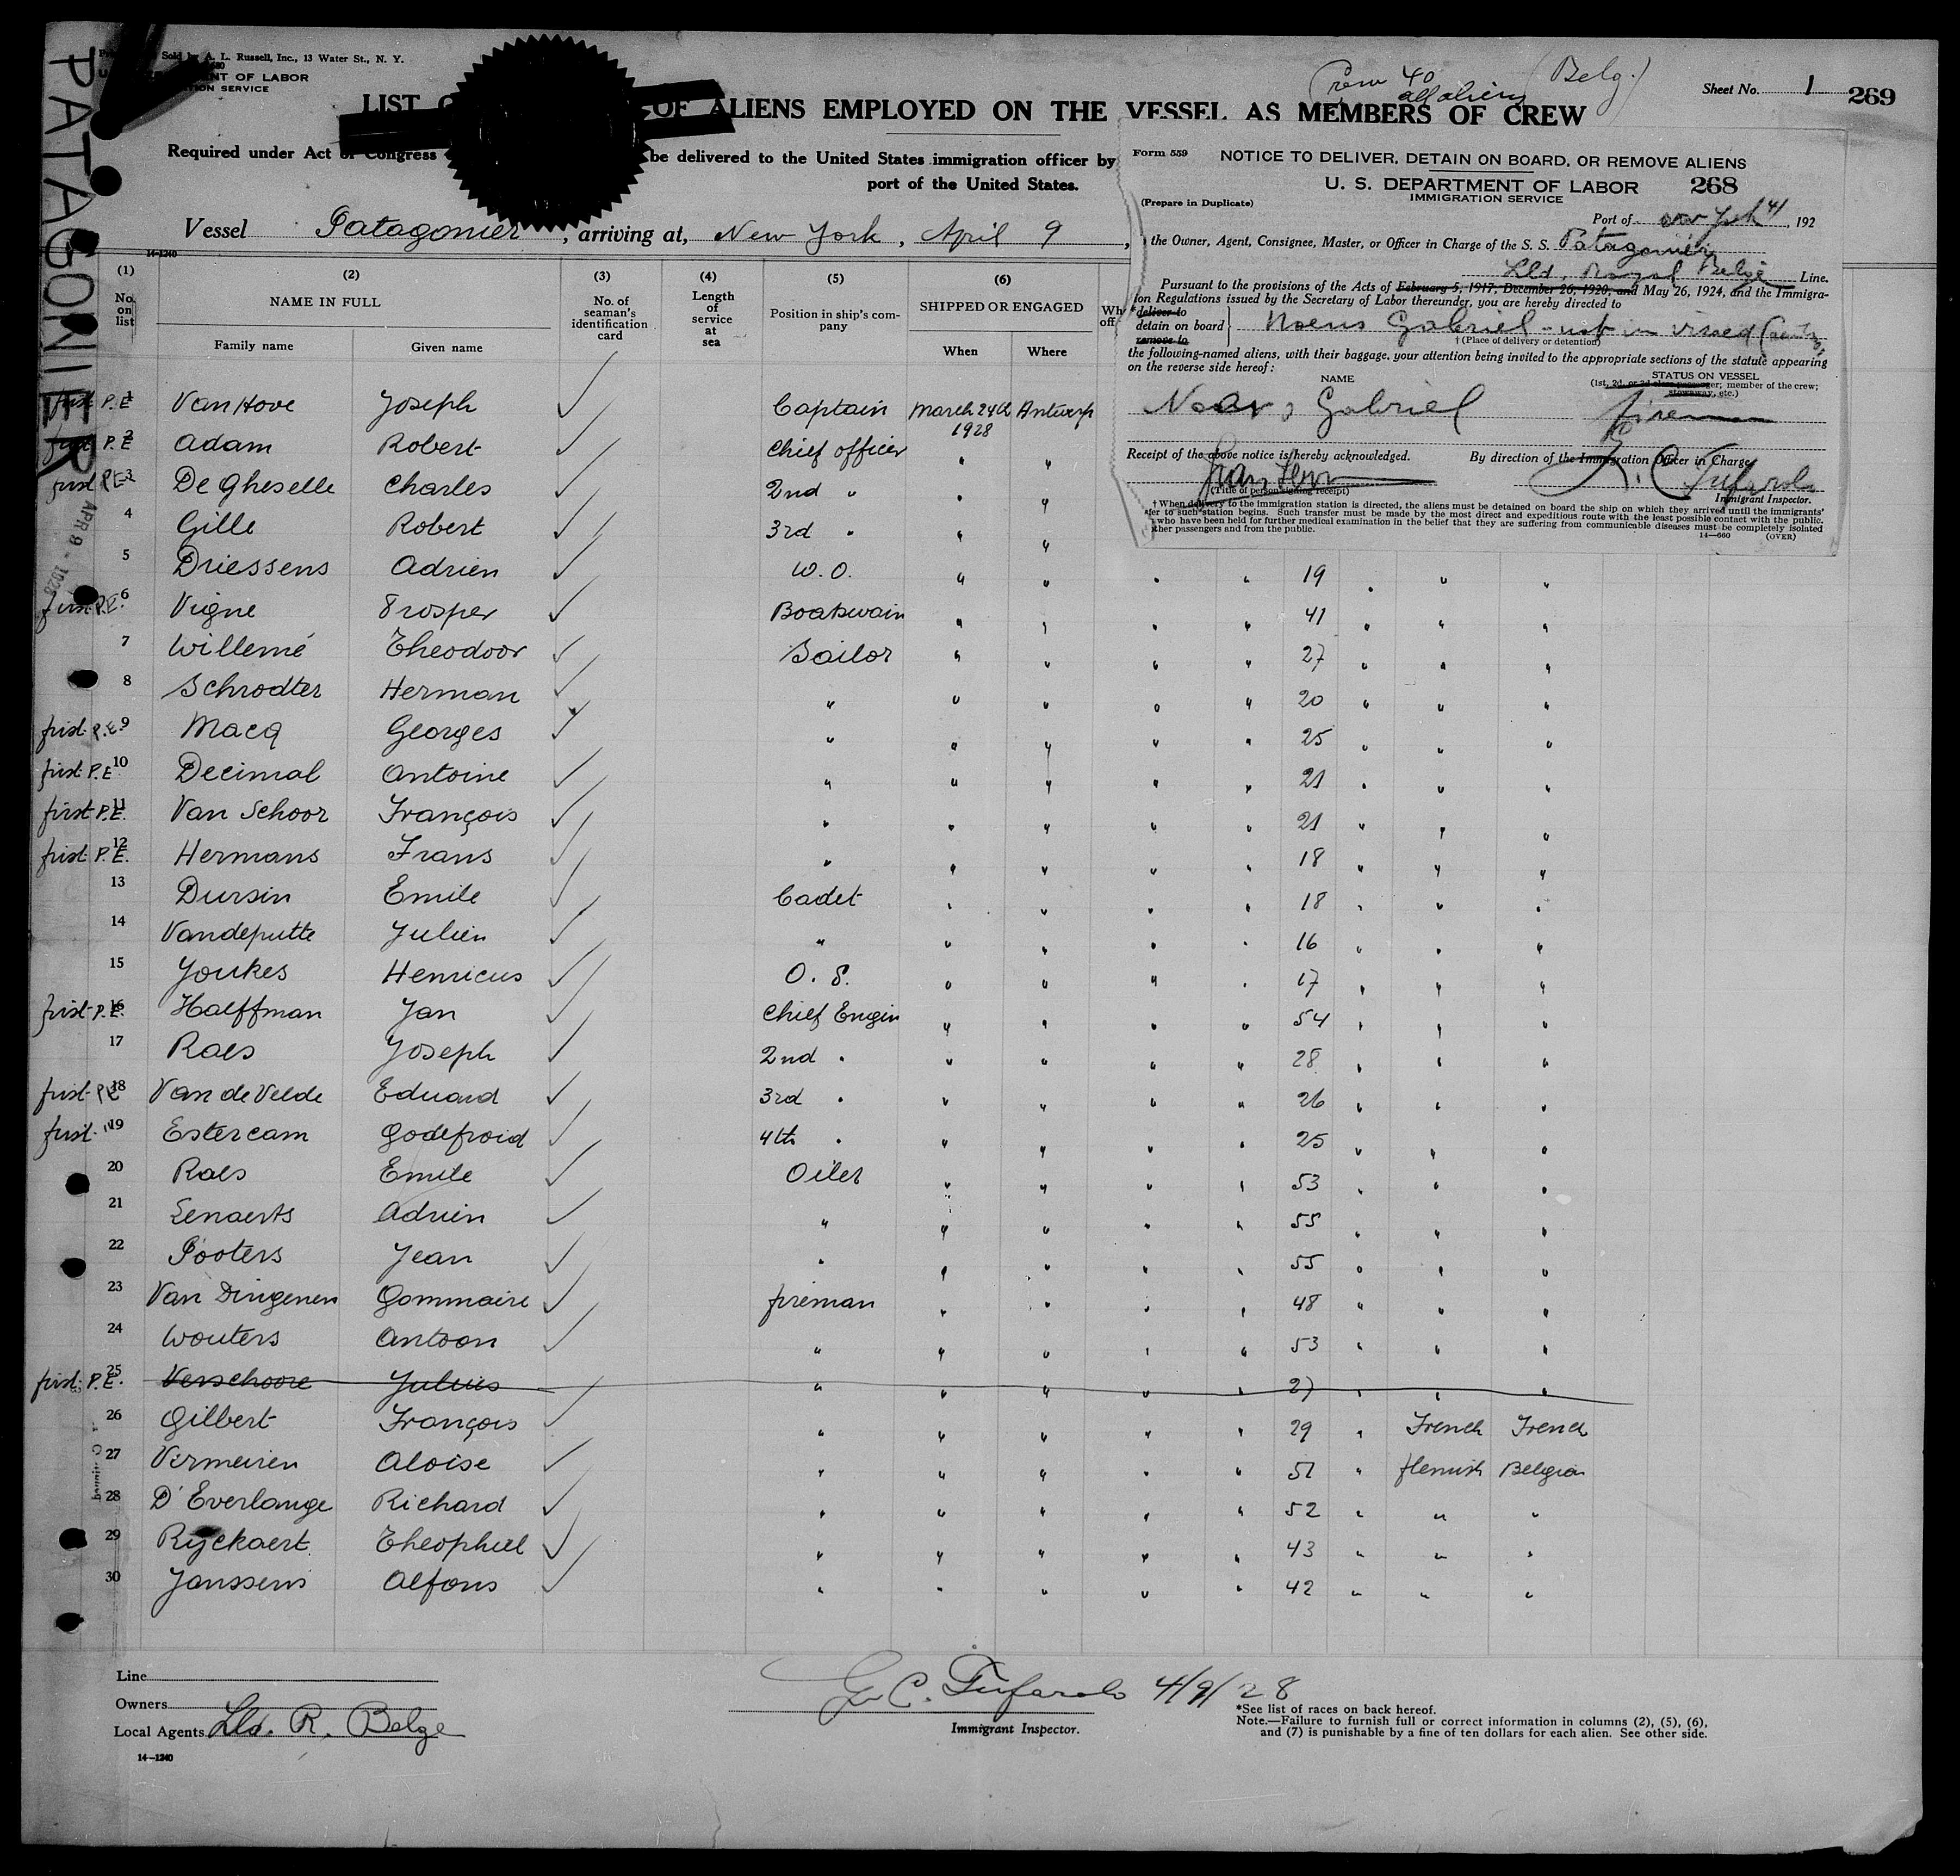 PATAGONIER
APR 9 - 1928
Sold by A. L. Russell, Inc., 13 Water St., N. Y.
OF LABOR
SERVICE
Crew 40 (Belg.)
all aliens
Sheet No. 1
269
LIST OF ALIENS EMPLOYED ON THE VESSEL AS MEMBERS OF CREW
Required under Act of Congress be delivered to the United States immigration officer by
port of the United States.
Vessel Patagonier, arriving at, New York, April 9,
14-1240
Form 559
NOTICE TO DELIVER, DETAIN ON BOARD, OR REMOVE ALIENS
U. S. DEPARTMENT OF LABOR 268
IMMIGRATION SERVICE
(Prepare in Duplicate)
Port of New York 41, 192
the Owner, Agent, Consignee, Master, or Officer in Charge of the S. S. Patagonier
Lld. Royal Belge Line.
Pursuant to the provisions of the Acts of February 5, 1917, December 26, 1920, and May 26, 1924, and the Immigra-
tion Regulations issued by the Secretary of Labor thereunder, you are hereby directed to
deliver to
detain on board
remove to
Noens Gabriel - not in visaed
† (Place of delivery or detention)
the following-named aliens, with their baggage, your attention being invited to the appropriate sections of the statute appearing
on the reverse side hereof:
NAME
STATUS ON VESSEL
(1st, 2d, or 3d class passenger; member of the crew;
stowaway, etc.)
Noens Gabriel fireman
Receipt of the above notice is hereby acknowledged.
By direction of the Immigration Officer in Charge
(Title of person signing receipt)
G. C. Tufarolo
Immigrant Inspector.
† When delivery to the immigration station is directed, the aliens must be detained on board the ship on which they arrived until the immigrants'
to such station begins. Such transfer must be made by the most direct and expeditious route with the least possible contact with the public.
who have been held for further medical examination in the belief that they are suffering from communicable diseases must be completely isolated
other passengers and from the public.
14-660 (OVER)
(1) (2) (3) (4) (5) (6)
No. on list
NAME IN FULL
Family name Given name
No. of seaman's identification card
Length of service at sea
Position in ship's company
SHIPPED OR ENGAGED
When Where
first P.E. 1 Van Hove Joseph ✓ Captain March 24th 1928 Antwerp
first P.E 2 Adam Robert ✓ Chief officer " "
first P.E 3 De Gheselle Charles ✓ 2nd " " "
4 Gille Robert ✓ 3rd " " "
5 Driessens Adrien ✓ W.O. " " " " 19 " " "
first P.E. 6 Vigne Prosper ✓ Boatswain " " " " 41 " " "
7 Willemé Theodoor ✓ Sailor " " " " 27 " " "
8 Schrodter Herman ✓ " " " " " 20 " " "
first P.E. 9 Macq Georges ✓ " " " " " 25 " " "
first P.E 10 Decimal Antoine ✓ " " " " " 21 " " "
first P.E. 11 Van Schoor François ✓ " " " " " 21 " " "
first P.E. 12 Hermans Frans ✓ " " " " " 18 " " "
13 Dursin Emile ✓ Cadet " " " " 18 " " "
14 Vandeputte Julien ✓ " " " " " 16 " " "
15 Joukes Henricus ✓ O. S. " " " " 17 " " "
first P.E. 16 Halffman Jan ✓ Chief Engin " " " " 54 " " "
17 Raes Joseph ✓ 2nd " " " " " 28 " " "
first P.E 18 Van de Velde Eduard ✓ 3rd " " " " " 26 " " "
first 19 Estercam Godefroid ✓ 4th " " " " " 25 " " "
20 Raes Emile ✓ Oiler " " " " 53 " " "
21 Lenaerts Adrien ✓ " " " " " 55 " " "
22 Pooters Jean ✓ " " " " " 55 " " "
23 Van Dingenen Gommaire ✓ fireman " " " " 48 " " "
24 Wouters Antoon ✓ " " " " " 53 " " "
first P.E. 25 Verschoore Julius " " " " " 27 " " "
26 Gilbert François ✓ " " " " " 29 " French French
27 Vermeiren Aloise ✓ " " " " " 51 " flemish Belgian
28 D'Everlange Richard ✓ " " " " " 52 " " "
29 Ryckaert Theophiel ✓ " " " " " 43 " " "
30 Janssens Alfons ✓ " " " " " 42 " " "
Line
Owners
Local Agents Lld. R. Belge
14-1240
G. C. Tufarolo 4/9/28
Immigrant Inspector.
*See list of races on back hereof.
Note.—Failure to furnish full or correct information in columns (2), (5), (6),
and (7) is punishable by a fine of ten dollars for each alien. See other side.